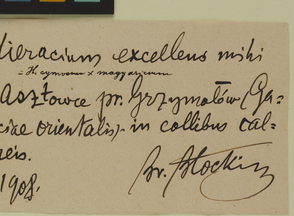 Hieracium excellens mihi
= H. cymosum x magyaricum
Lasztowce pr. Grzymałów (Ga-
liciae orientalis) in collibus cal-
careis.
1908.
Br. Błocki